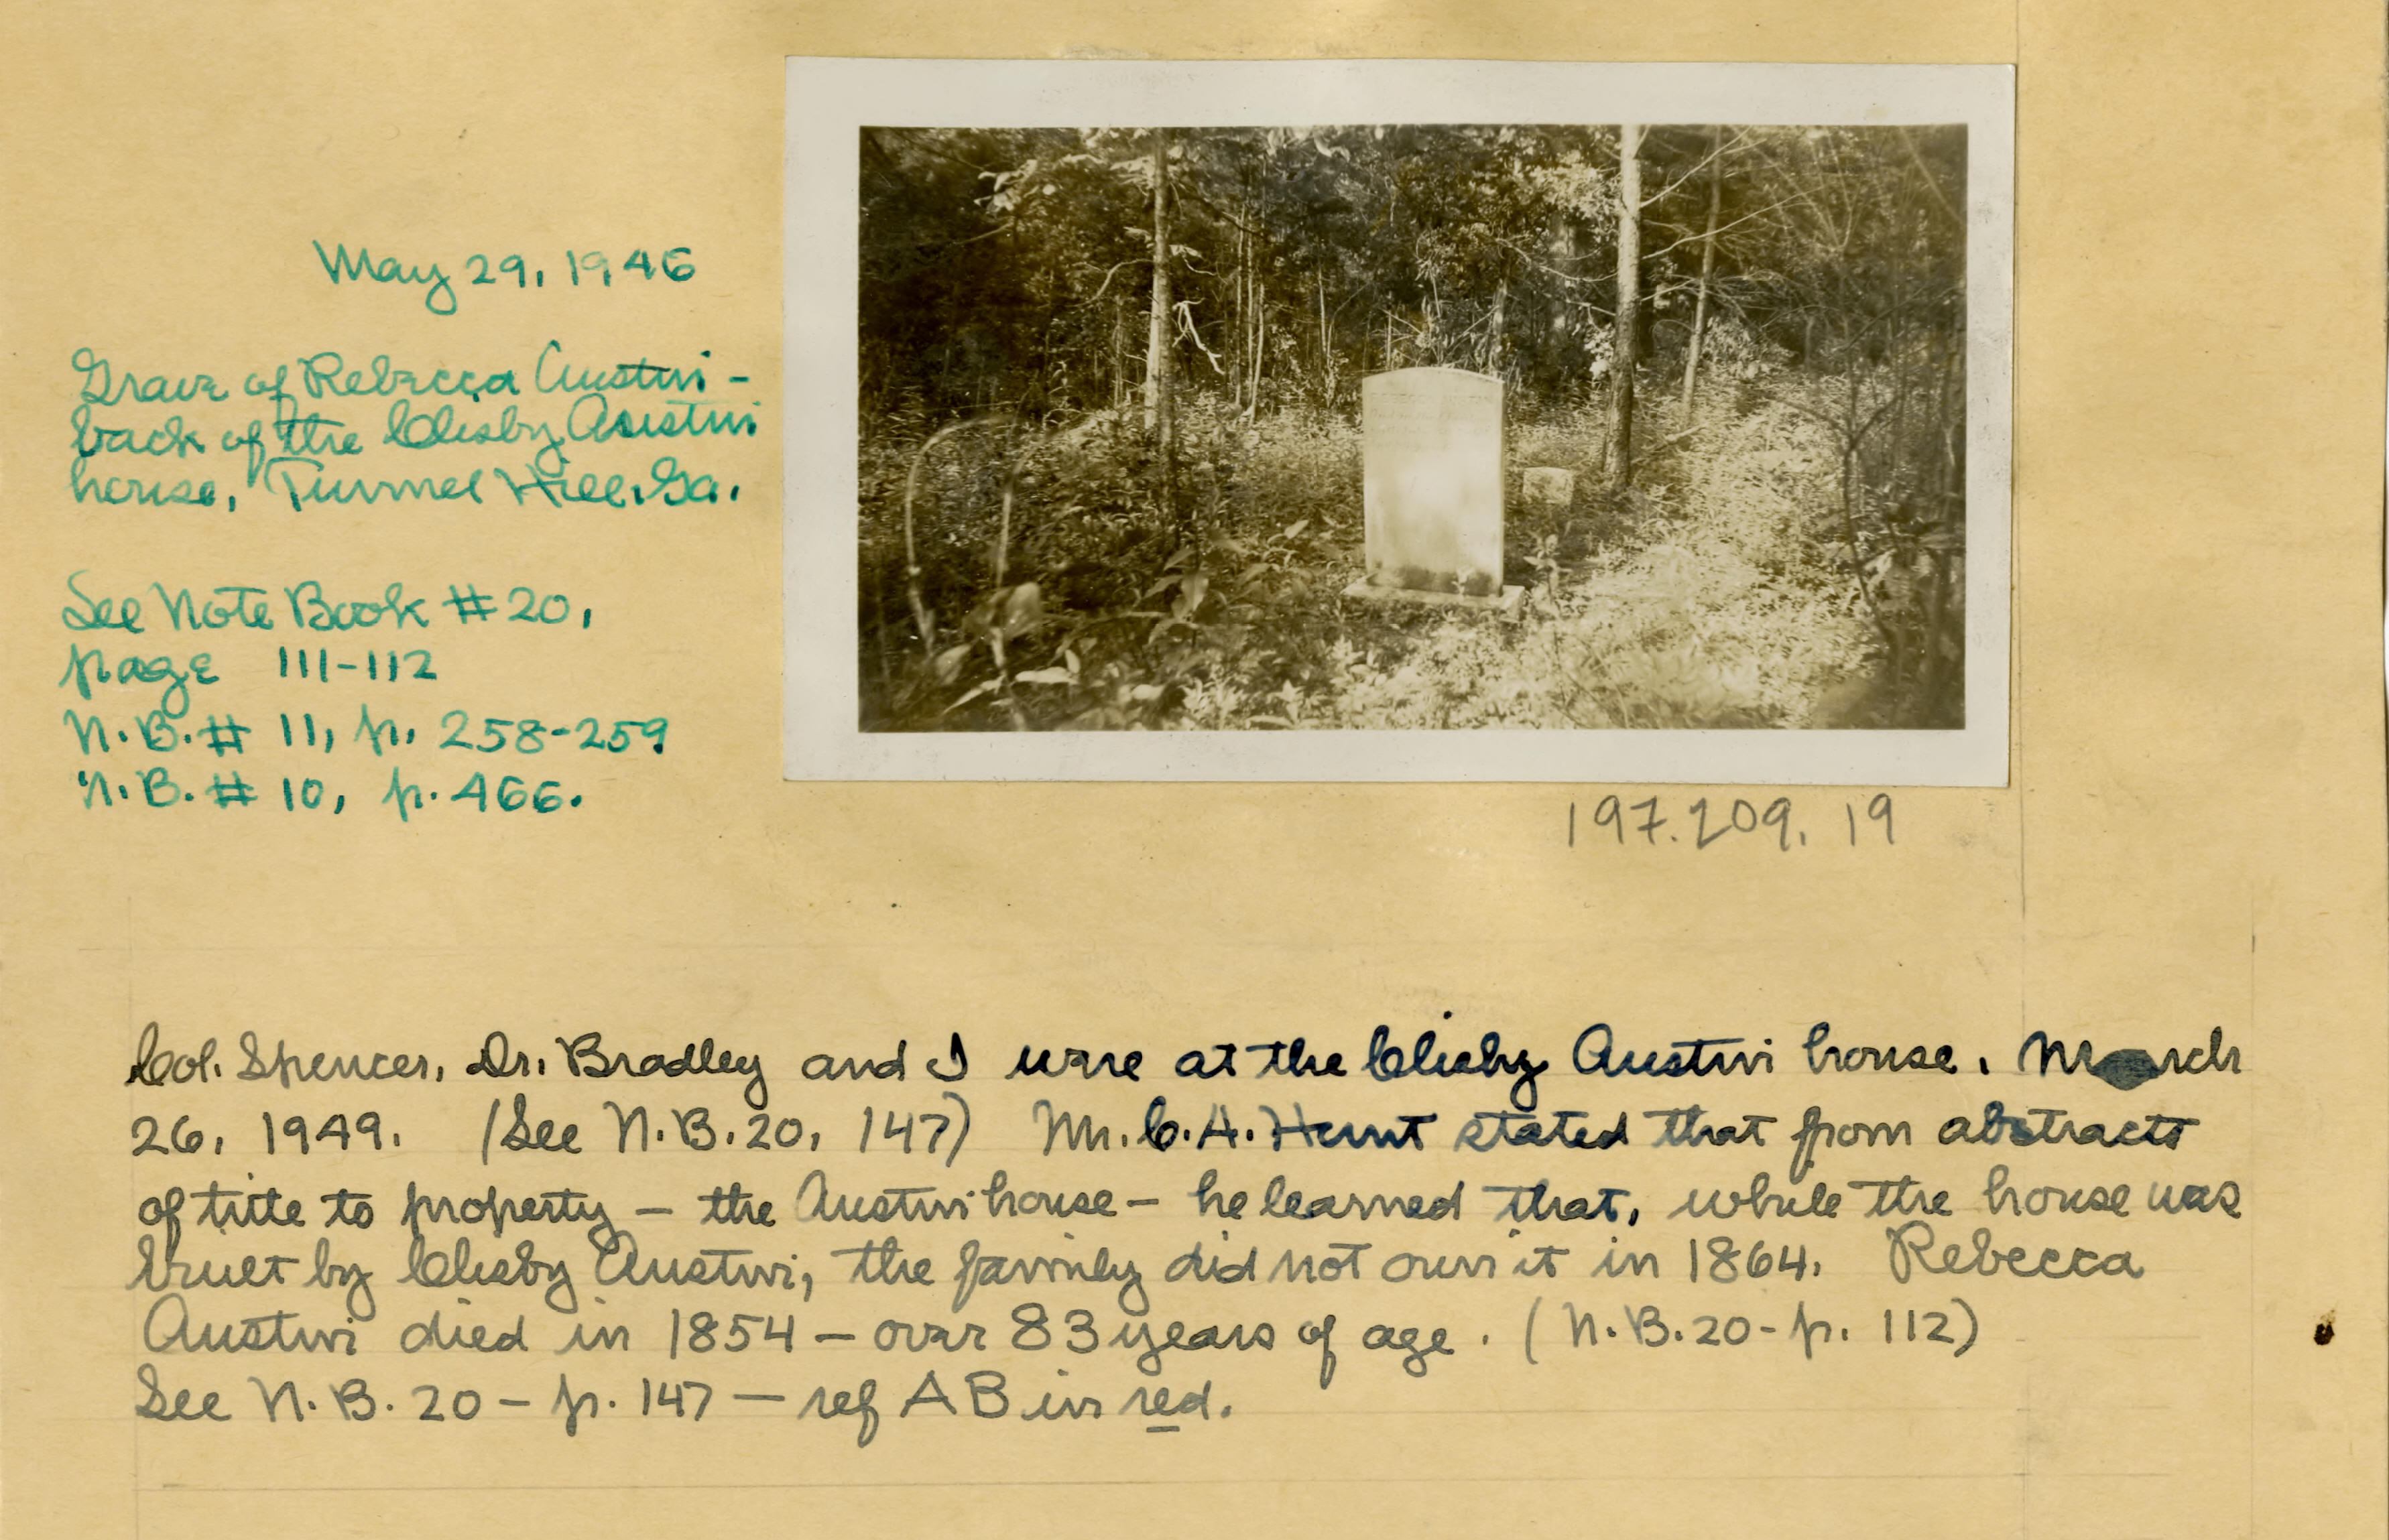 May 29, 1946
Grave of Rebecca Austin -
back of the Clisby Austin
house, Tunnel Hill, Ga.
See Note Book # 20,
page 111-112
N.B. # 11, p. 258-259
N.B. # 10, p. 466.
197.209.19
Col. Spencer, Dr. Bradley and I were at the Clisby Austin house, March
26, 1949. (See N.B. 20, 147) Mr. C. H. Hunt stated that from abstracts
of title to property — the Austin house — he learned that, while the house was
built by Clisby Austin, the family did not own it in 1864. Rebecca
Austin died in 1854 — over 83 years of age. (N.B. 20 - p. 112)
See N.B. 20 - p. 147 — ref A B in red.